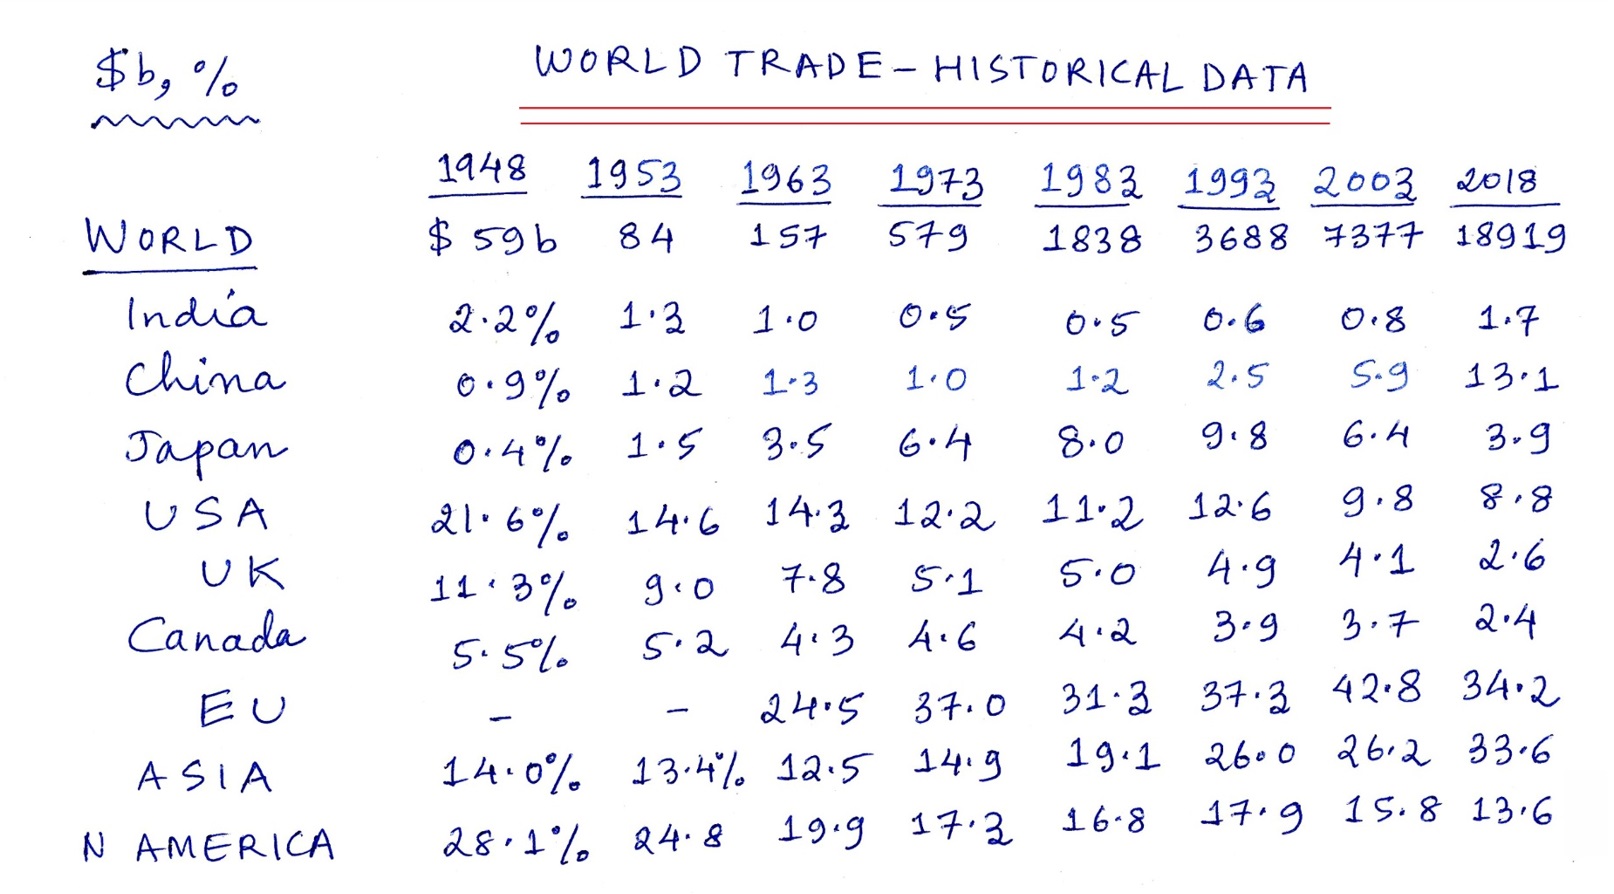 $b, % WORLD TRADE – HISTORICAL DATA
1948 1953 1963 1973 1983 1993 2003 2018
WORLD $ 59b 84 157 579 1838 3688 7377 18919
India 2.2% 1.3 1.0 0.5 0.5 0.6 0.8 1.7
China 0.9% 1.2 1.3 1.0 1.2 2.5 5.9 13.1
Japan 0.4% 1.5 3.5 6.4 8.0 9.8 6.4 3.9
USA 21.6% 14.6 14.3 12.2 11.2 12.6 9.8 8.8
UK 11.3% 9.0 7.8 5.1 5.0 4.9 4.1 2.6
Canada 5.5% 5.2 4.3 4.6 4.2 3.9 3.7 2.4
EU – – 24.5 37.0 31.3 37.3 42.8 34.2
ASIA 14.0% 13.4% 12.5 14.9 19.1 26.0 26.2 33.6
N AMERICA 28.1% 24.8 19.9 17.3 16.8 17.9 15.8 13.6